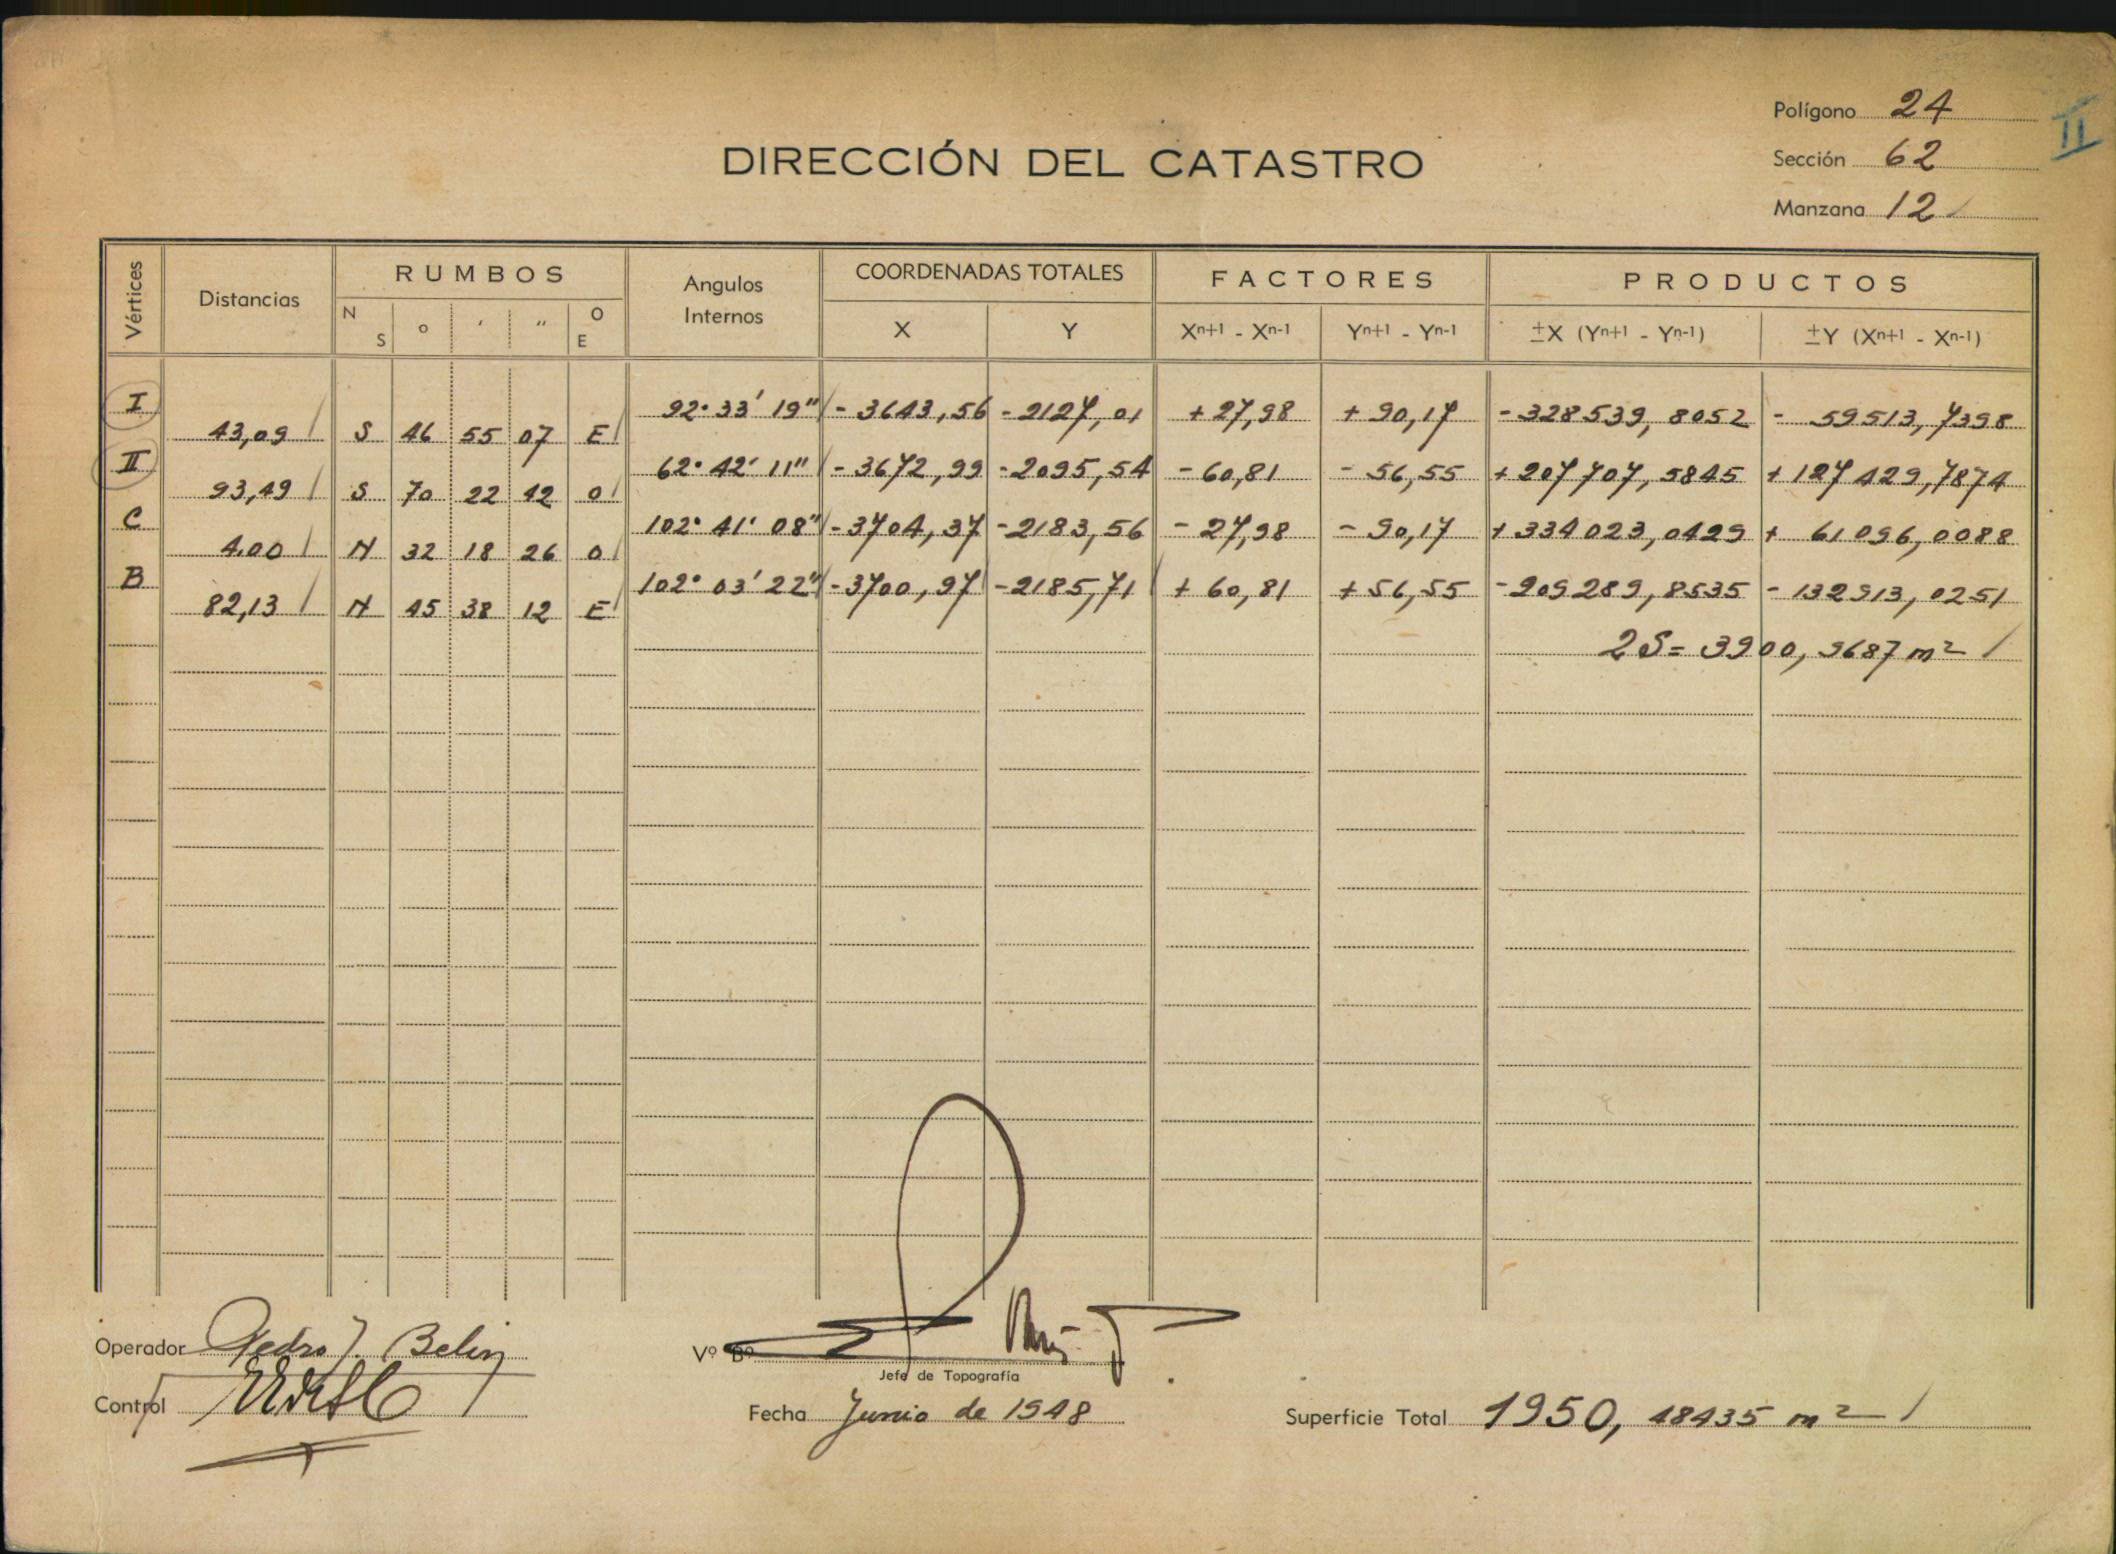 Polígono 24
II
Sección 62
DIRECCIÓN DEL CATASTRO
Manzana 12
Vértices Distancias RUMBOS Angulos Internos COORDENADAS TOTALES FACTORES PRODUCTOS
N S o ′ ″ O E X Y Xn+1 - Xn-1 Yn+1 - Yn-1 ±X (Yn+1 - Yn-1) ±Y (Xn+1 - Xn-1)
I 92° 33′ 19″ - 3643,56 - 2127,01 + 27,98 + 90,17 - 328539,8052 - 59513,7398
43,09 S 46 55 07 E
II 62° 42′ 11″ - 3672,99 - 2095,54 - 60,81 - 56,55 + 207707,5845 + 127429,7874
93,49 S 70 22 42 O
C 102° 41′ 08″ - 3704,37 - 2183,56 - 27,98 - 90,17 + 334023,0429 + 61096,0088
4.00 N 32 18 26 O
B 102° 03′ 22″ - 3700,97 - 2185,71 + 60,81 + 56,55 - 209289,8535 - 132913,0251
82,13 N 45 38 12 E
2S = 3900,9687 m²
Operador Pedro J. Belin
Vº Bº
Jefe de Topografía
Control
Fecha Junio de 1948
Superficie Total 1950,48435 m²